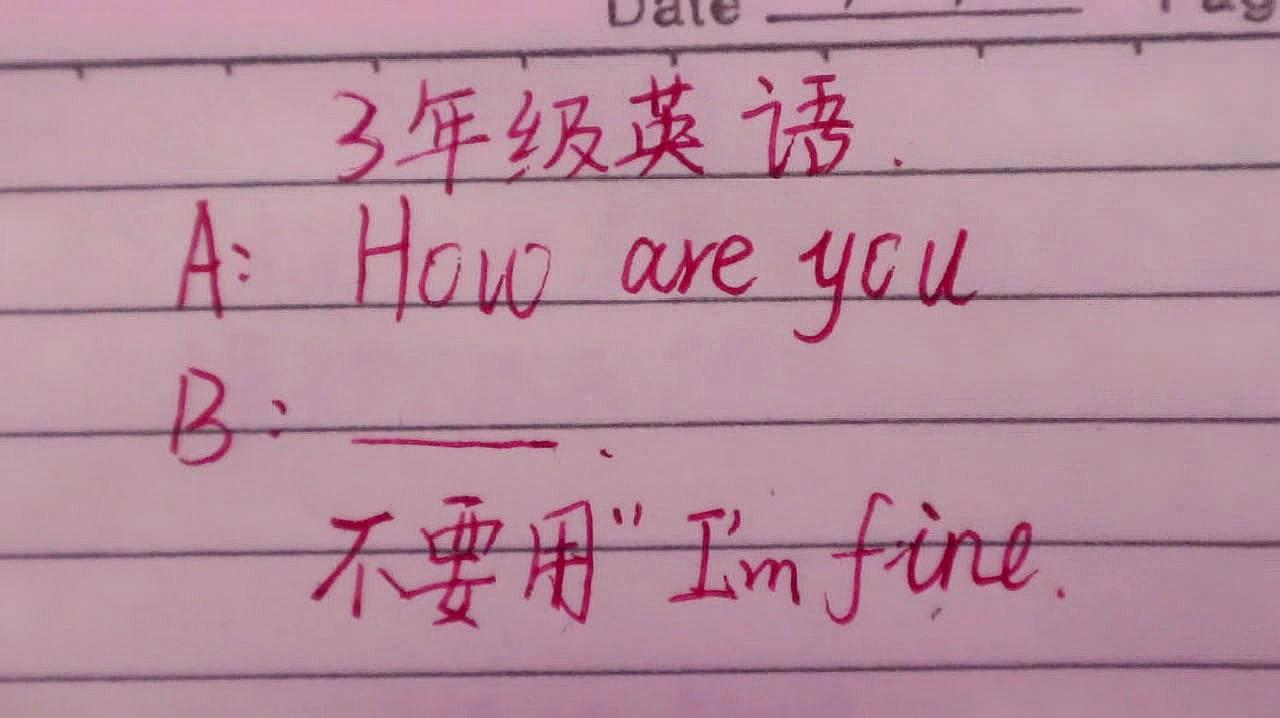 Date
3年级英语.
A: How are you
B: ____.
不要用" I'm fine.